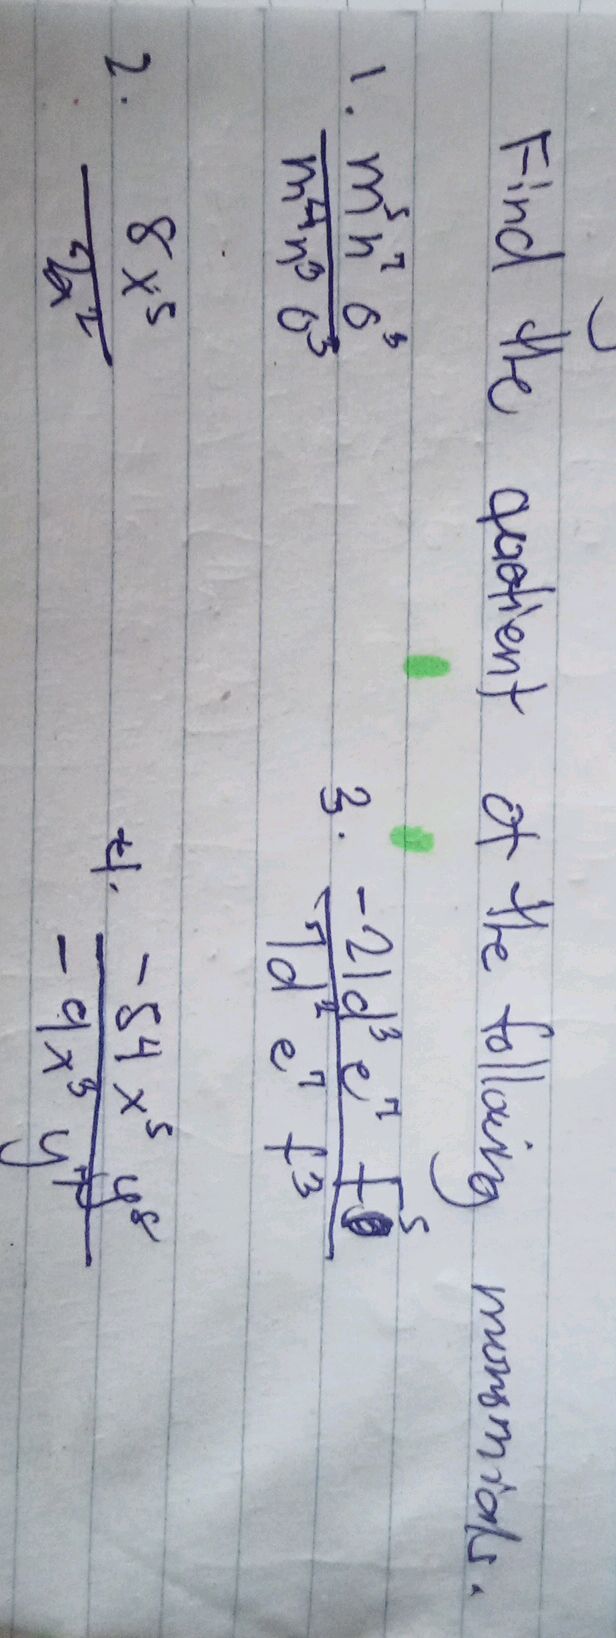 Find the quotient of the following monomials.
1. m⁵n⁷ o³ / m⁴n³ o³
3. -21d³ e⁷ f⁵ / 7d² e⁷ f³
2. 8x⁵
4. -54x⁵ y⁸ / -9x³ y⁷